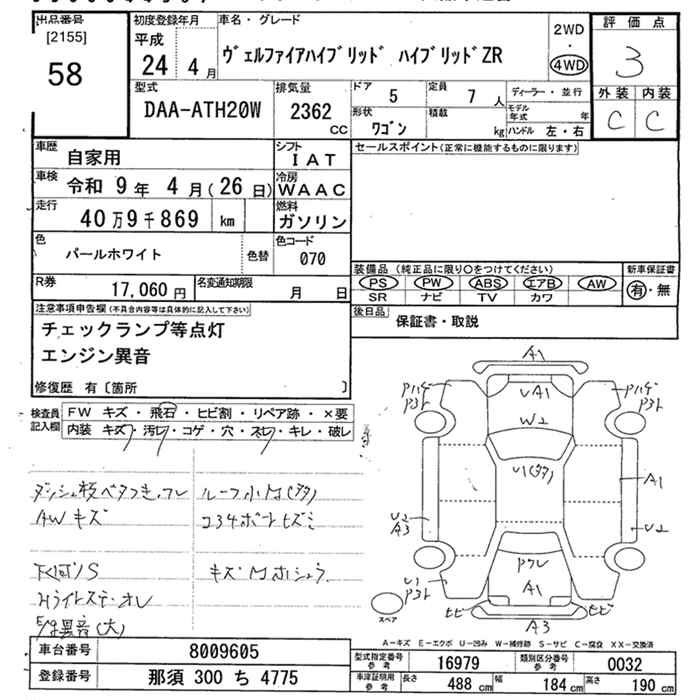 出品番号
[2155]
58
初度登録年月
平成
24年 4月
車名・グレード
ヴェルファイアハイブリッド ハイブリッドZR
2WD
・
4WD
評価点
3
外装 内装
C C
型式
DAA-ATH20W
排気量
2362
CC
ドア 5
定員 7人
形状 ワゴン
積載 kg
ディーラー・並行
モデル年式 年
ハンドル 左・右
車歴 自家用
シフト IAT
車検 令和 9年 4月(26日)
冷房 WAAC
走行 40万9千869 km
燃料 ガソリン
色 パールホワイト
色替
色コード 070
R券 17,060円
名変通知期限 月 日
セールスポイント(正常に機能するものに限ります)
装備品 (純正品に限り○をつけてください)
新車保証書
PS PW ABS エアB AW
SR ナビ TV カワ
有・無
後日品 保証書・取説
注意事項申告欄(不具合内容等は具体的に記入して下さい)
チェックランプ等点灯
エンジン異音
修復歴 有〔箇所 〕
検査員記入欄
FW キズ・飛石・ヒビ割・リペア跡・×要
内装 キズ・汚レ・コゲ・穴・スレ・キレ・破レ
ダッシュ板ベタつき、ワレ
ルーフ小凹(タタ)
AWキズ
コ34ボード ヒズミ
下廻りS
キズ凹ホシュウ
Hライトステーオレ
E/g異音(大)
A1
UA1
W2
U1(タタ)
A1
U2
A3
U2
U1
ワレ
A1
A3
ヒビ
ヒビ
スペア
A-キズ E-エクボ U-凹み W-補修跡 S-サビ C-腐食 XX-交換済
車台番号 8009605
登録番号 那須 300 ち 4775
型式指定番号 参考 16979
類別区分番号 参考 0032
車検証明用 参考 長さ 488 cm 幅 184 cm 高さ 190 cm